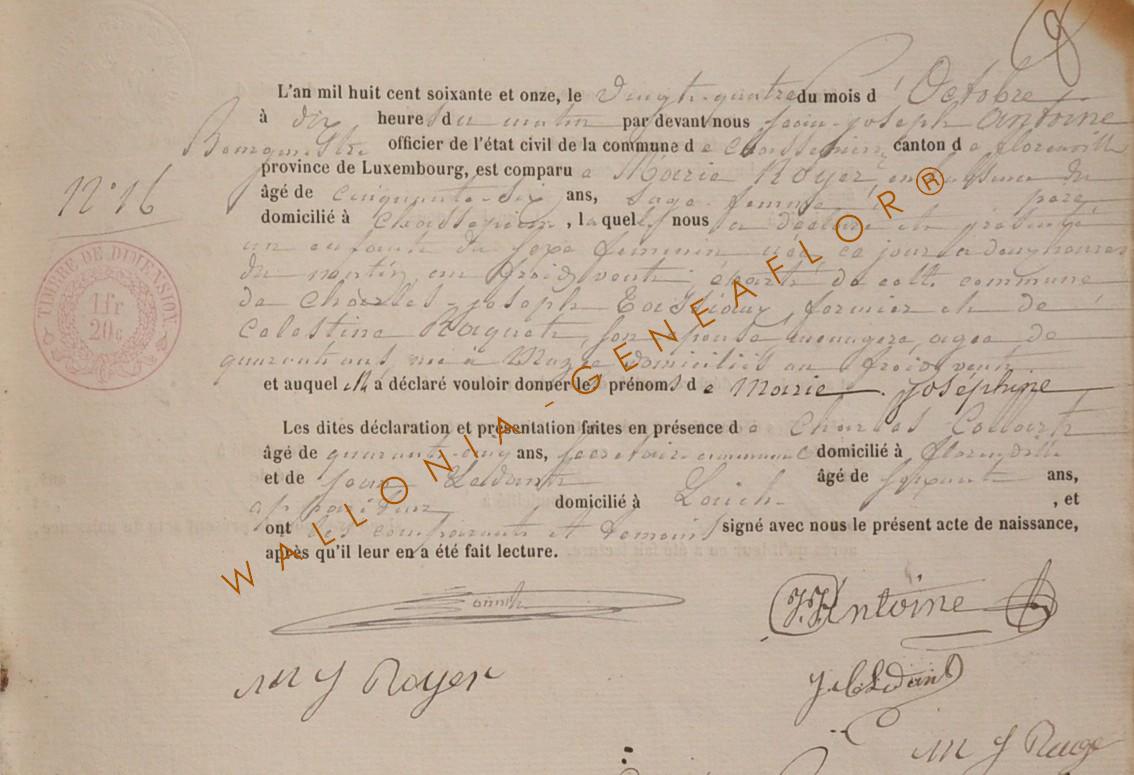 8
L'an mil huit cent soixante et onze, le vingt-quatre du mois d'Octobre
à dix heures du matin par devant nous Jean-Joseph Antoine
Bourgmestre officier de l'état civil de la commune de Chassepierre canton de Florenville
province de Luxembourg, est comparue Marie Royer, en l'absence du
âgé de cinquante-six ans, sage-femme père
domicilié à Chassepierre, laquelle nous a déclaré et présenté
N° 16
un enfant du sexe féminin né ce jour à heures
du matin, au froid vent, de cette commune
de Charles-Joseph fermier et de
Celestine son épouse ménagère, agée de
quarante ans, née à domiciliés au froid vent
et auquel a déclaré vouloir donner les prénoms de Marie-Joséphine
TIMBRE DE DIMENSION.
1fr
20c
Les dites déclaration et présentation faites en présence de Charles
âgé de quarante-cinq ans, secrétaire communal domicilié à Florenville
et de Jean âgé de soixante ans,
domicilié à , et
ont les comparants et témoins signé avec nous le présent acte de naissance,
après qu'il leur en a été fait lecture.
J.J. Antoine
M J Royer
WALLONIA-GENEAFLOR®